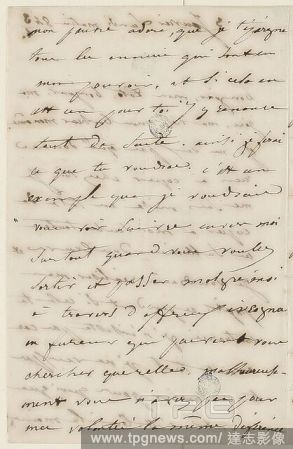 mon pauvre adoré, que je t'épargne
tous les ennuis qui sont en
mon pouvoir, et si cela en
est un pour toi j'y renonce
tout de suite. ainsi je ferai
ce que tu voudras. c'est un
exemple que je voudrais
vous voir suivre envers moi
surtout quand vous voulez
sortir et passer malgré moi
à travers d'affreux
en fureur qui peuvent vous
chercher querelle. malheureuse-
ment vous n'avez pas pour
ma volonté la même déférence
www.tpgnews.com/ 達志影像